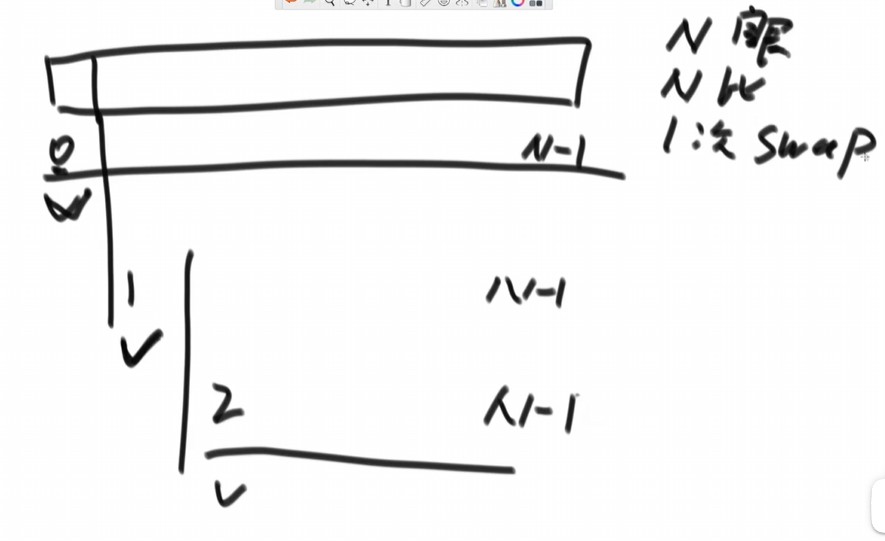 N 眼
N 比
1次 swap
0 N-1
1 N-1
2 N-1